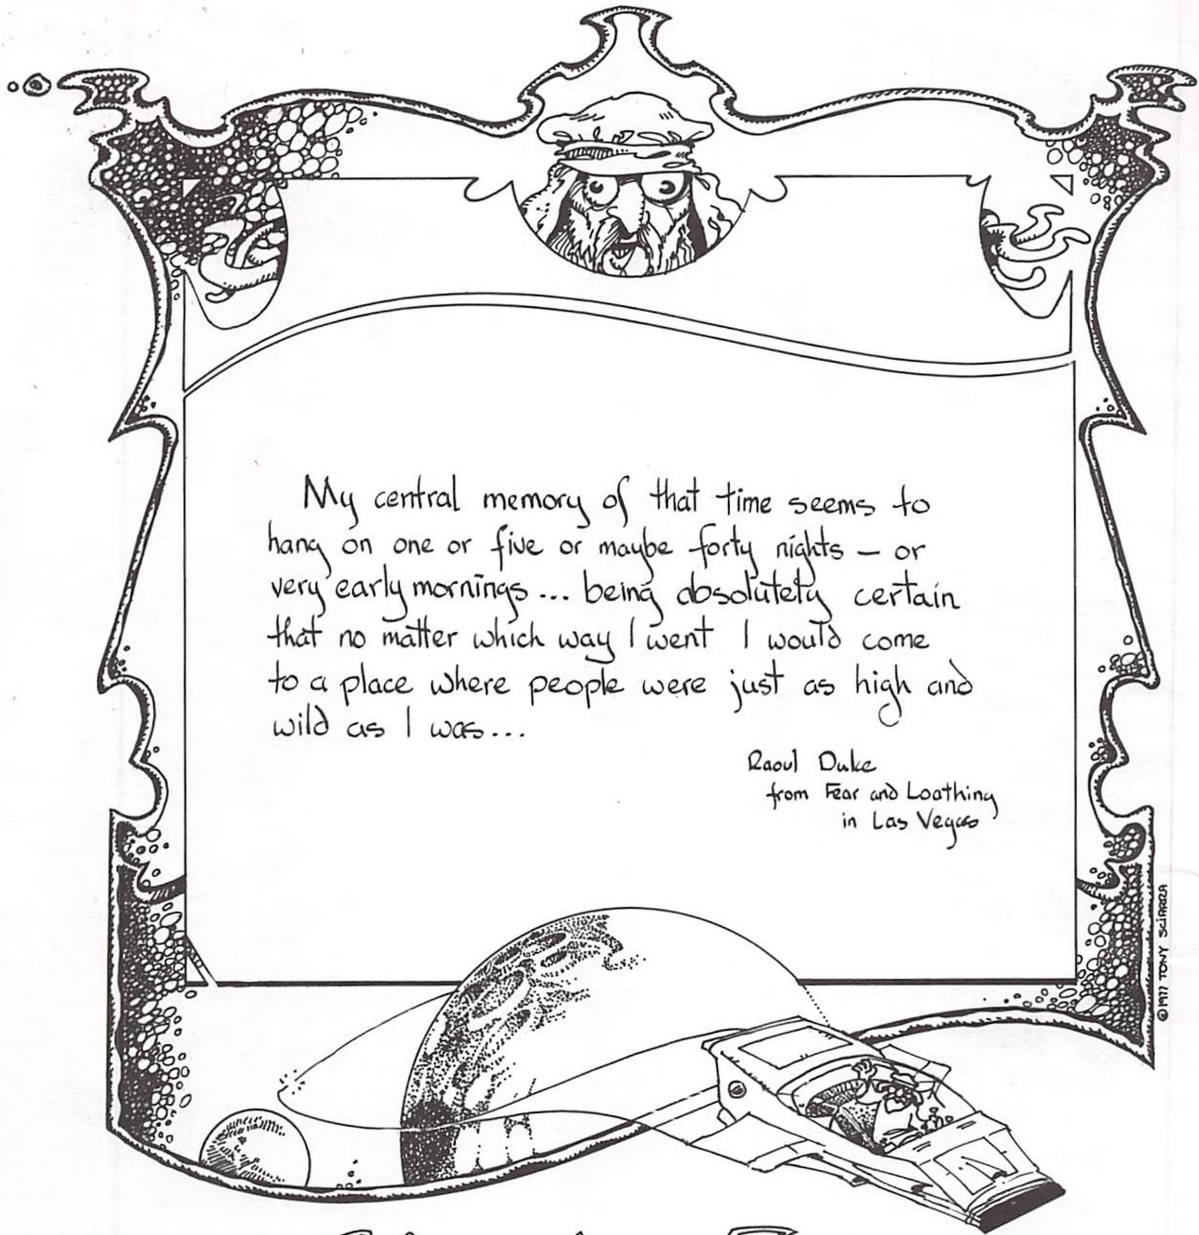 My central memory of that time seems to
hang on one or five or maybe forty nights – or
very early mornings... being absolutely certain
that no matter which way I went I would come
to a place where people were just as high and
wild as I was...
Raoul Duke
from Fear and Loathing
in Las Vegas
©1977 TONY SCIARRA